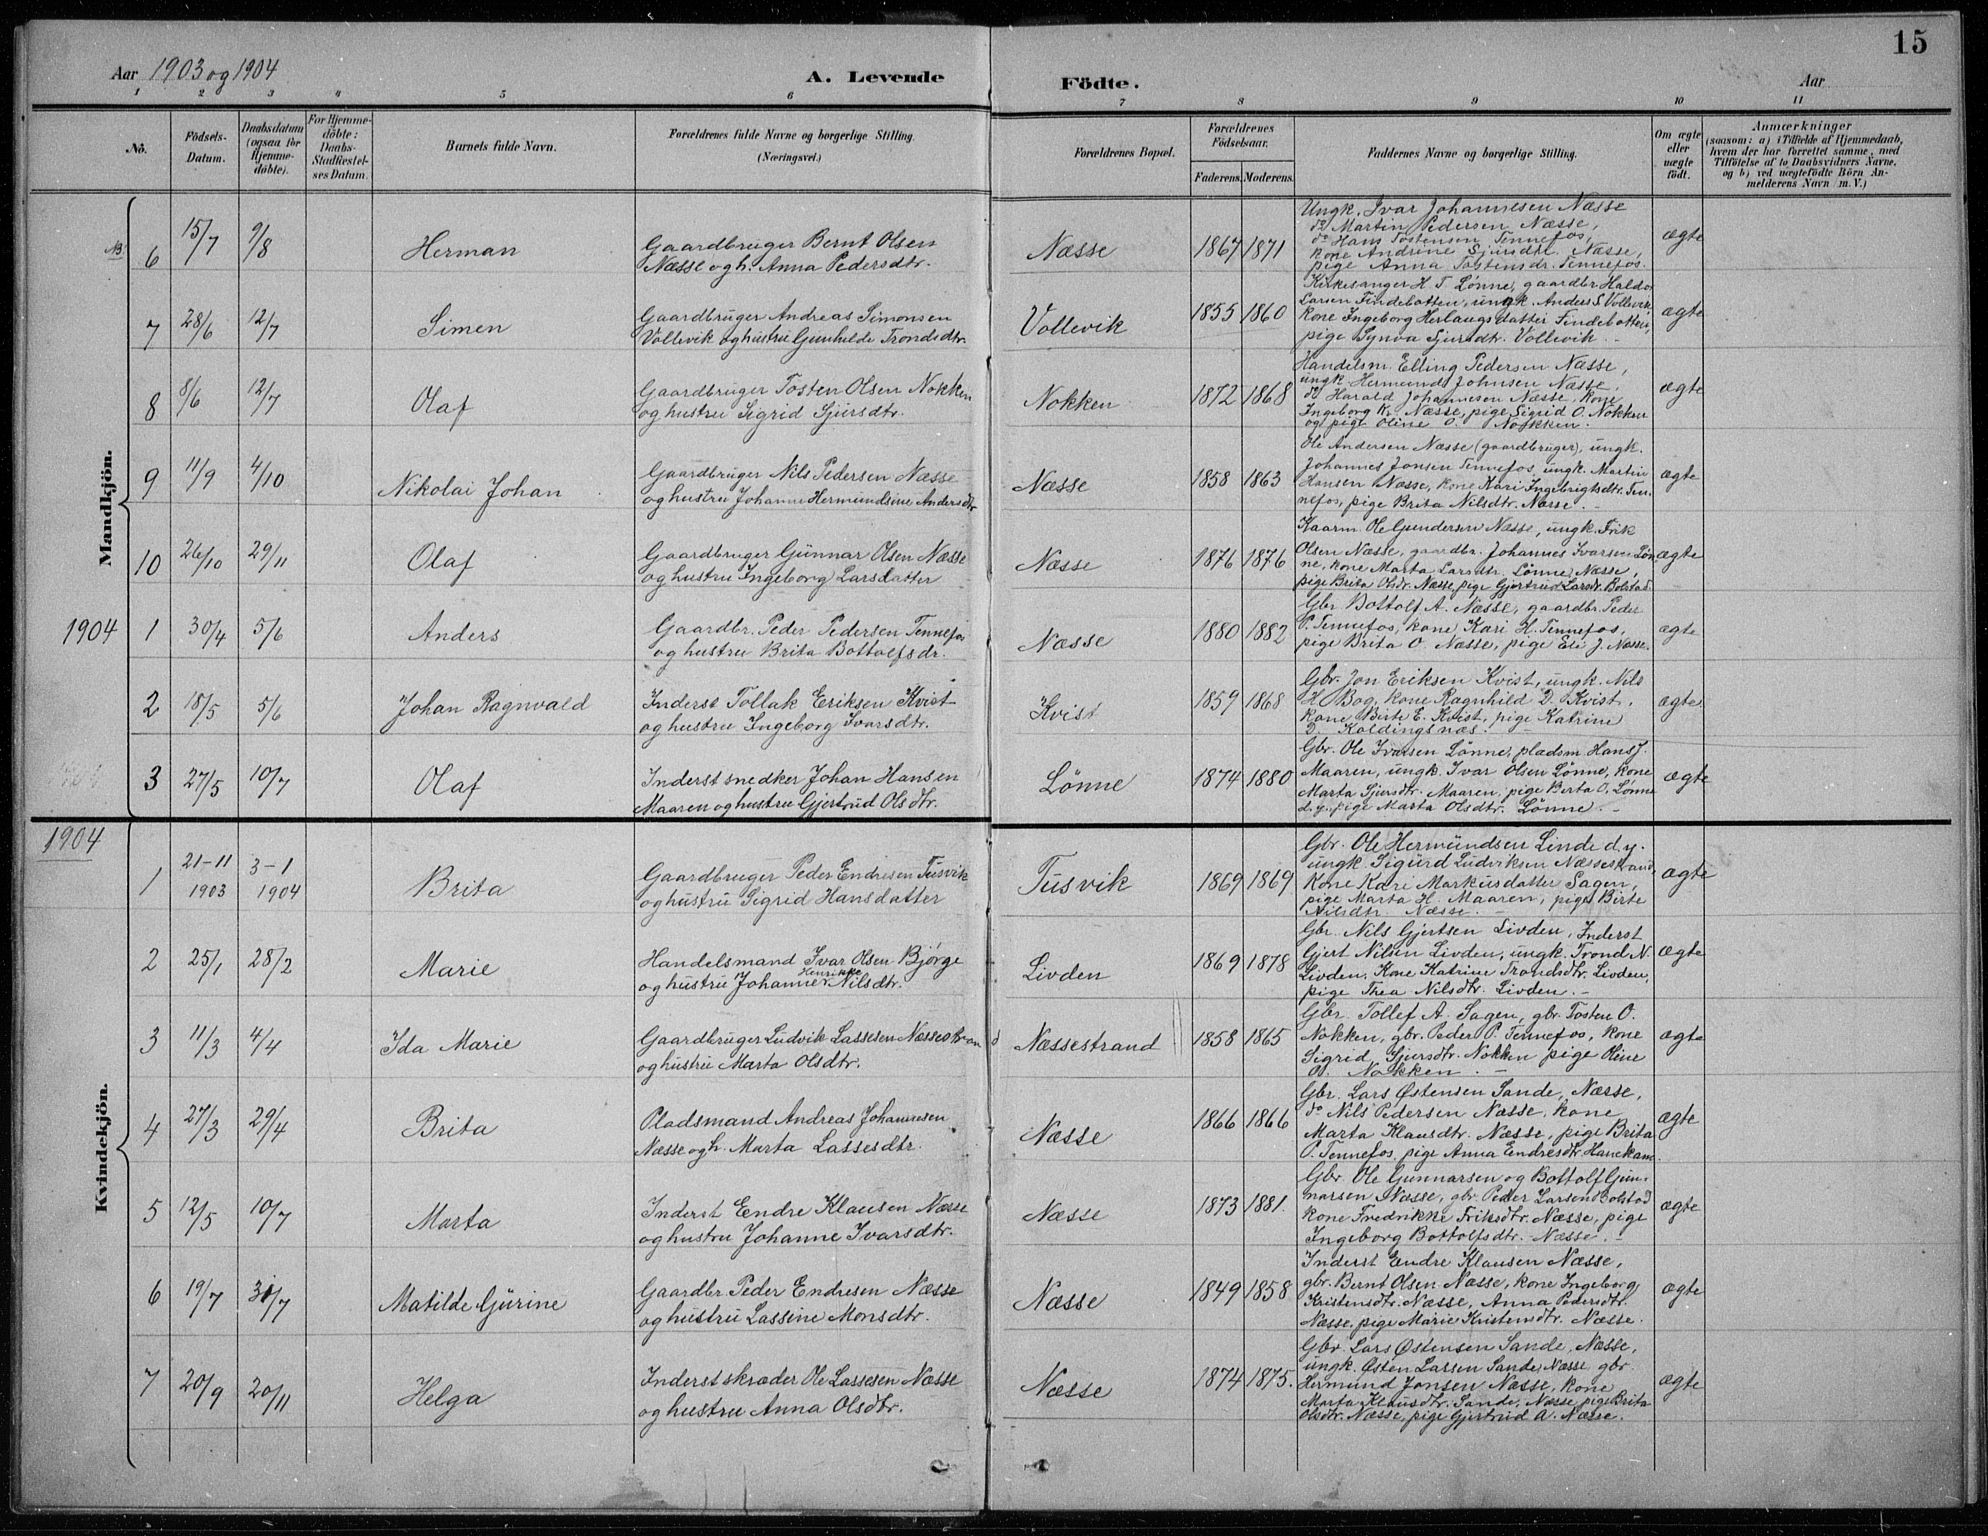 15
Aar 1903 og 1904
A. Levende Födte.
Aar
1 2 3 4 5 6 7 8 9 10 11
No.
Födsels-Datum.
Daabsdatum (ogsaa för Hjemme-döbte).
For Hjemme-döbte: Daabs-Stadfæstel-ses Datum.
Barnets fulde Navn.
Forældrenes fulde Navne og borgerlige Stilling.
(Næringsvei.)
Forældrenes Bopæl.
Forældrenes Födselsaar.
Faderens. Moderens.
Faddernes Navne og borgerlige Stilling.
Om ægte eller uægte födt.
Anmærkninger
(saasom: a) i Tilfælde af Hjemmedaab,
hvem der har forrettet samme, med
Tilföielse af to Daabsvidners Navne,
og b) ved uægtefödte Börn An-
melderens Navn (m. V.)
Mandkjön.
6 15/7 9/8 Herman
Gaardbruger Bernt Olsen
Næsse og h. Anna Pedersdtr.
Næsse 1867 1871
Ungk. Ivar Johannesen Næsse
do Martin Pedersen Næsse,
do Hans Tostensen Tennefos,
kone Andrine Sjursdtr. Næsse,
pige Anna Tostensdr. Tennefos.
ægte
7 28/6 12/7 Simen
Gaardbruger Andreas Simonsen
Vollevik og hustru Gunhilde Trondsdtr.
Vollevik 1855 1860
Kirkesanger H. T. Lønne, gaardbr. Haldo
Larsen Findebotten, ungk. Anders S. Vollevik
kone Ingeborg Herlaugsdatter Findebotten,
pige Synva Sjursdtr. Vollevik.
ægte
8 8/6 12/7 Olaf
Gaardbruger Tosten Olsen Nokken
og hustru Sigrid Sjursdtr.
Nokken 1872 1868
Handelsm. Elling Pedersen Næsse,
ungk. Hermund Johnsen Næsse,
do Harald Johannesen Næsse, kone
Ingeborg K. Næsse, pige Sigrid O. Nokken
og pige Oline O. Nokken.
ægte
9 11/9 4/10 Nikolai Johan
Gaardbruger Nils Pedersen Næsse
og hustru Johanne Hermundsine Andersdtr
Næsse 1858 1863
Ole Andersen Næsse (gaardbruger), ungk.
Johannes Jonsen Tennefos, ungk. Martin
Hansen Næsse, kone Kari Ingebrigtsdtr. Ten-
nefos, pige Brita Nilsdtr. Næsse.
ægte
10 26/10 29/11 Olaf
Gaardbruger Gunnar Olsen Næsse
og hustru Ingeborg Larsdatter
Næsse 1876 1876
Kaarm. Ole Gundersen Næsse, ungk. Erik
Olsen Næsse, gaardbr. Johannes Ivarsen Løn-
ne, kone Marta Larsdtr. Lønne, Næsse,
pige Brita Olsdr. Næsse, pige Gjertrud Larsdr. Bolstad.
ægte
1904 1 30/4 5/6 Anders
Gaardbr. Peder Pedersen Tennefos
og hustru Brita Bottolfsdr.
Næsse 1880 1882
Gbr. Bottolf A. Næsse, gaardbr. Peder
P. Tennefos, kone Kari H. Tennefos,
pige Brita O. Næsse, pige Eli J. Næsse.
ægte
2 18/5 5/6 Johan Ragnvald
Inderst Tollak Eriksen Kvist
og hustru Ingeborg Ivarsdtr.
Kvist 1859 1868
Gbr. Jon Eriksen Kvist, ungk. Nils
H. Bog, kone Ragnhild D. Kvist,
kone Birte E. Kvist, pige Katrine
D. Koldingsnæs.
ægte
3 27/5 10/7 Olaf
Inderst snedker Johan Hansen
Maaren og hustru Gjertrud Olsdtr.
Lønne 1874 1880
Gbr. Ole Ivarsen Lønne, pladsm. Hans J.
Maaren, ungk. Ivar Olsen Lønne, kone
Marta Sjursdtr. Maaren, pige Berta O. Lønne
d.y. pige Marta Olsdtr. Lønne.
ægte
1904
Kvindekjön.
1 21-11 1903 3-1 1904 Brita
Gaardbruger Peder Endresen Tusvik
og hustru Sigrid Hansdatter
Tusvik 1869 1869
Gbr. Ole Hermundsen Linde d.y.
ungk. Sigurd Ludviksen Næssestrand,
Kone Kari Markusdatter Sagen,
pige Marta H. Maaren, pige Birte
Nilsdtr. Næsse.
ægte
2 25/1 28/2 Marie
Handelsmand Ivar Olsen Bjørge
og hustru Johanne Henrikke Nilsdtr.
Livden 1869 1878
Gbr. Nils Gjertsen Livden, Inderst
Gjert Nilsen Livden, ungk. Trond N.
Livden, Kone Katrine Trondsdtr. Livden,
pige Thea Nilsdtr. Livden.
ægte
3 11/3 4/4 Ida Marie
Gaardbruger Ludvik Lassesen Næssestran d
og hustru Marta Olsdtr.
Næssestrand 1858 1865
Gbr. Tollef A. Sagen, gbr. Tosten O.
Nokken, gbr. Peder P. Tennefos, kone
Sigrid Sjursdtr. Nokken pige Oline
O. Nokken.
ægte
4 27/3 29/4 Brita
Pladsmand Andreas Johannesen
Næsse og h. Marta Lassesdtr.
Næsse 1866 1866
Gbr. Lars Østensen Sande, Næsse,
do Nils Pedersen Næsse, kone
Marta Klausdtr. Næsse, pige Brita
P. Tennefos, pige Anna Endresdtr. Hanekam
ægte
5 12/5 10/7 Marta
Inderst Endre Klausen Næsse
og hustru Johanne Ivarsdtr.
Næsse 1873 1881.
Gbr. Ole Gunnarsen og Bottolf Gun-
narsen Næsse, gbr. Peder Larsen Bolstad
kone Fredrikke Eriksdtr. Næsse, pige
Ingeborg Bottolfsdtr. Næsse.
ægte
6 19/7 31/7 Matilde Gurine
Gaardbr. Peder Endresen Næsse
og hustru Lassine Monsdtr.
Næsse 1849 1858
Inderst Endre Klausen Næsse,
gbr. Bernt Olsen Næsse, kone Ingeborg
Kristensdtr. Næsse, Anna Pedersdtr.
Næsse, pige Marie Kristensdtr. Næsse.
ægte
7 20/9 20/11 Helga
Inderst skræder Ole Lassesen Næsse
og hustru Anna Olsdtr.
Næsse 1874 1875.
Gbr. Lars Østensen Sande, Næsse,
ungk. Østen Larsen Sande, Næsse, gbr.
Hermund Jonsen Næsse, kone
Marta Klausdtr. Sande, Næsse, pige Brita
Olsdtr. Næsse, pige Gjertrud A. Næsse.
ægte